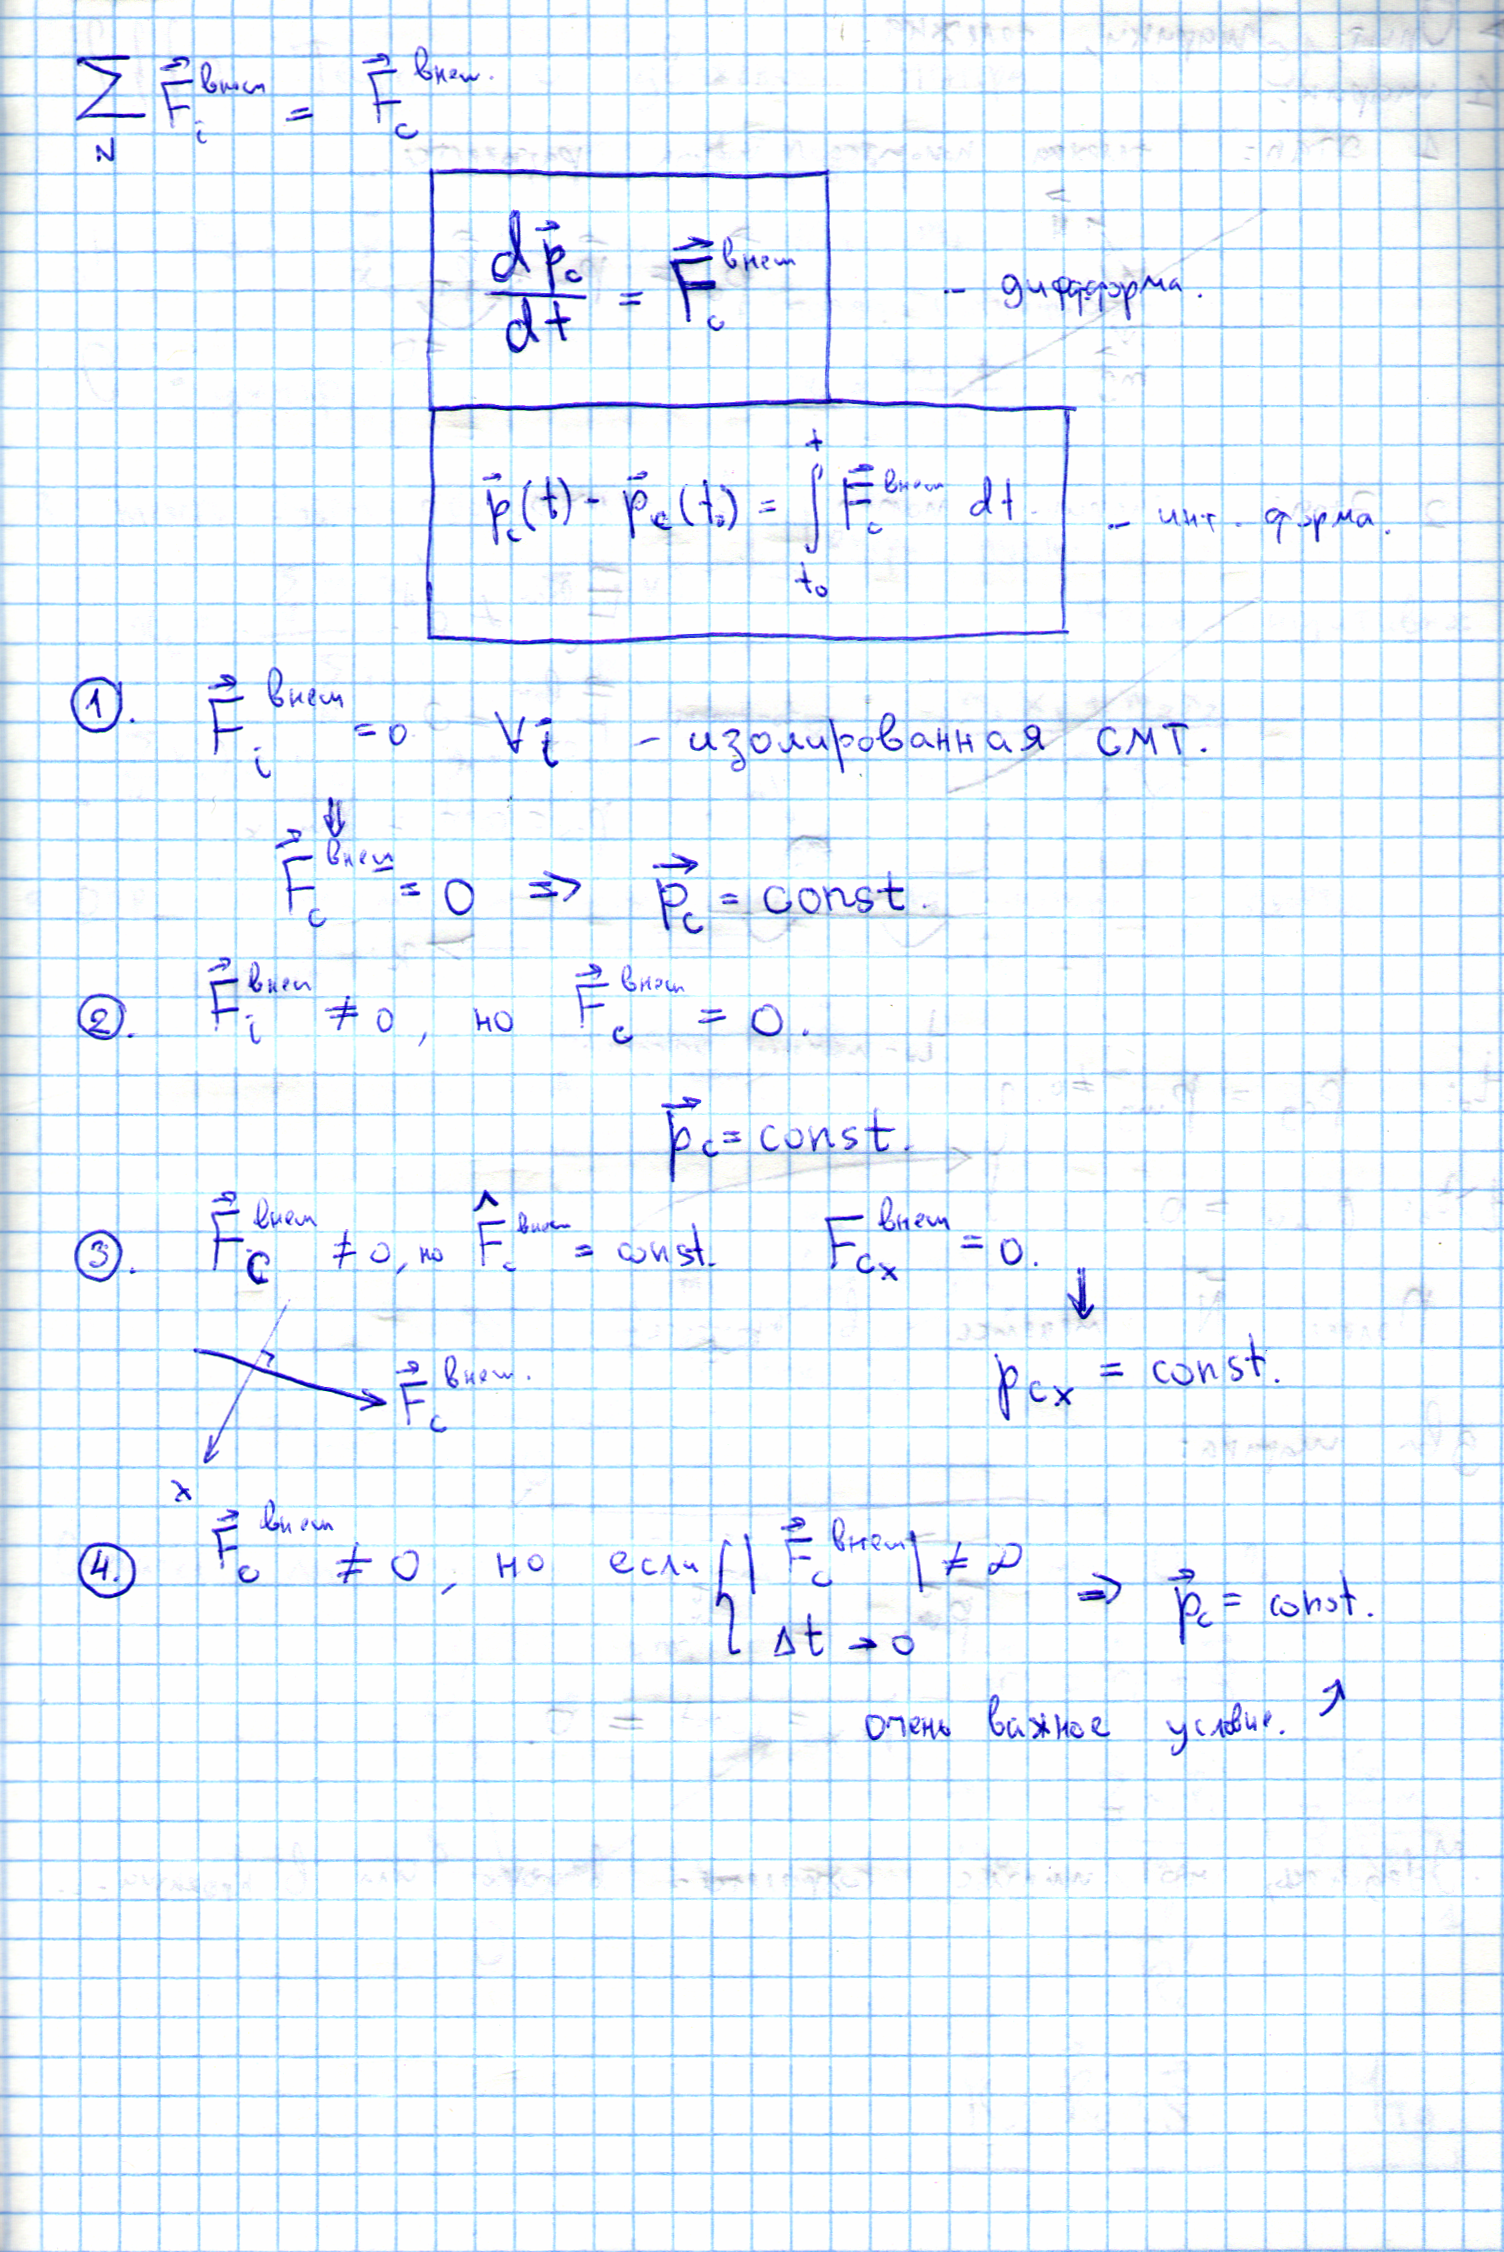 ∑_N F⃗_i^внеш = F⃗_c^внеш.
dp⃗_c/dt = F⃗_c^внеш – дифф.форма.
p⃗_c(t) - p⃗_c(t₀) = ∫_{t₀}^{t} F⃗_c^внеш dt – инт. форма.
①. F⃗_i^внеш = 0 ∀i – изолированная СМТ.
⇓
F⃗_c^внеш = 0 ⇒ p⃗_c = const.
②. F⃗_i^внеш ≠ 0, но F⃗_c^внеш = 0.
p⃗_c = const.
③. F⃗_c^внеш ≠ 0, но F̂_c^внеш = const. F_cx^внеш = 0.
⇓
p_cx = const.
F⃗_c^внеш.
x
④. F⃗_c^внеш ≠ 0, но если { |F⃗_c^внеш| ≠ ∞
Δt → 0 ⇒ p⃗_c = const.
очень важное условие. ↗